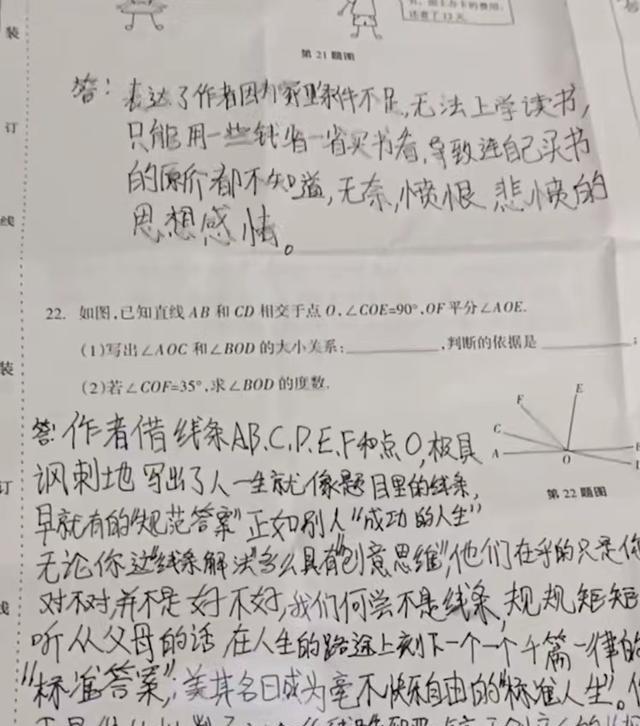 装
订
线
装
订
线
述者丁 13 天.
第 21 题图
答：表达了作者因为家里条件不足,无法上学读书,
只能用一些钱省一省买书看,导致连自己买书
的原价都不知道,无奈,愤恨,悲愤的
思想感情。
22. 如图,已知直线 AB 和 CD 相交于点 O,∠COE=90°,OF 平分∠AOE.
(1)写出∠AOC 和∠BOD 的大小关系:________,判断的依据是________;
(2)若∠COF=35°,求∠BOD 的度数.
E
F
C
A
O
第 22 题图
答:作者借线条AB,C,D,E,F和点O,极具
讽刺地写出了人一生就像题目里的线条,
早就有的"规范答案"正如别人"成功的人生"
无论你这"线条解法"多么具有"创意思维",他们在乎的只是你
对不对,并不是好不好,我们何尝不是线条,规规矩矩
听从父母的话,在人生的路途上刻下一个一个千篇一律的
"标准答案",美其名曰成为毫不快乐自由的"标准人生"。